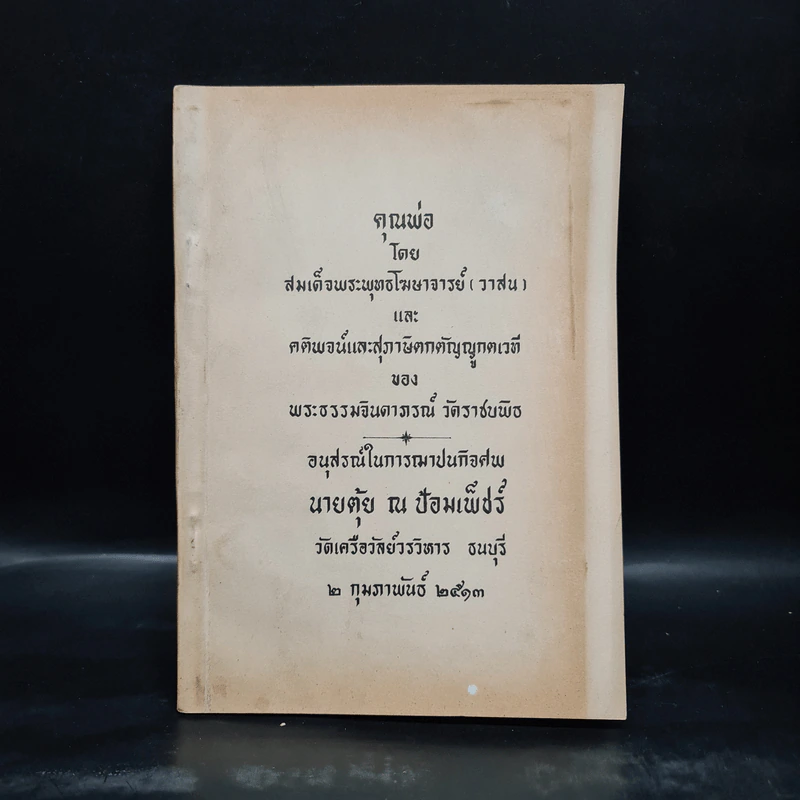 คุณพ่อ
โดย
สมเด็จพระพุทธโฆษาจารย์ (วาสน)
และ
คติพจน์และสุภาษิตกตัญญูกตเวที
ของ
พระธรรมจินดาภรณ์ วัดราชบพิธ
อนุสรณ์ในการฌาปนกิจศพ
นายตุ้ย ณ ป้อมเพ็ชร์
วัดเครือวัลย์วรวิหาร ธนบุรี
๒ กุมภาพันธ์ ๒๕๑๓